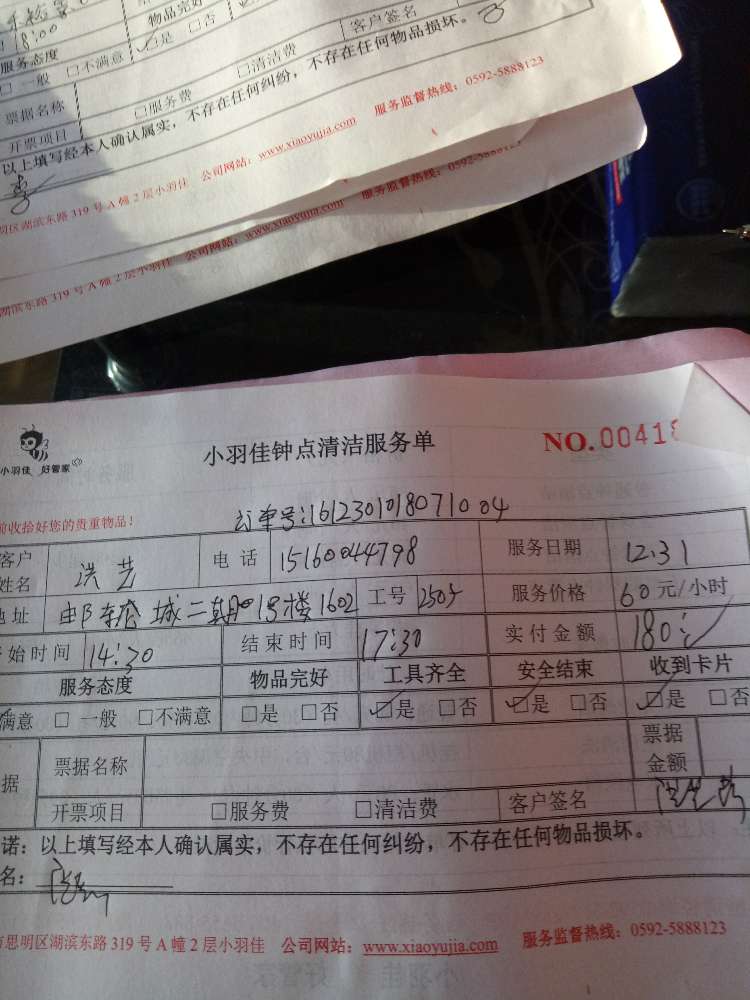 18:00
物品完好
服务态度
☑是 □否
客户签名
□一般 □不满意
票据名称
□服务费 □清洁费
开票项目
以上填写经本人确认属实，不存在任何纠纷，不存在任何物品损坏。
区湖滨东路319号A幢2层小羽佳 公司网站：www.xiaoyujia.com 服务监督热线：0592-5888123
湖滨东路319号A幢2层小羽佳 公司网站：www.xiaoyujia.com 服务监督热线：0592-5888123
小羽佳 好管家
小羽佳钟点清洁服务单
NO.00418
前收拾好您的贵重物品！
订单号：1612301018071004
客户姓名 洪艺 电话 15160044798 服务日期 12.31
地址 城二期1号楼1602 工号 2505 服务价格 60元/小时
开始时间 14:30 结束时间 17:30 实付金额 180
服务态度 物品完好 工具齐全 安全结束 收到卡片
满意 □一般 □不满意 □是 □否 ☑是 □否 ☑是 □否 ☑是 □否
据 票据名称 票据金额
开票项目 □服务费 □清洁费 客户签名
诺：以上填写经本人确认属实，不存在任何纠纷，不存在任何物品损坏。
名：
思明区湖滨东路319号A幢2层小羽佳 公司网站：www.xiaoyujia.com 服务监督热线：0592-5888123